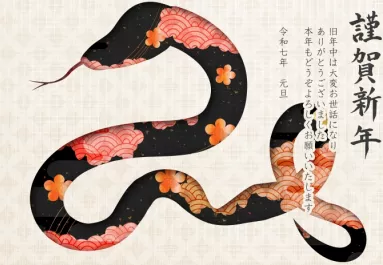 謹賀新年
旧年中は大変お世話になり
ありがとうございました
本年もどうぞよろしくお願いいたします
令和七年　元旦